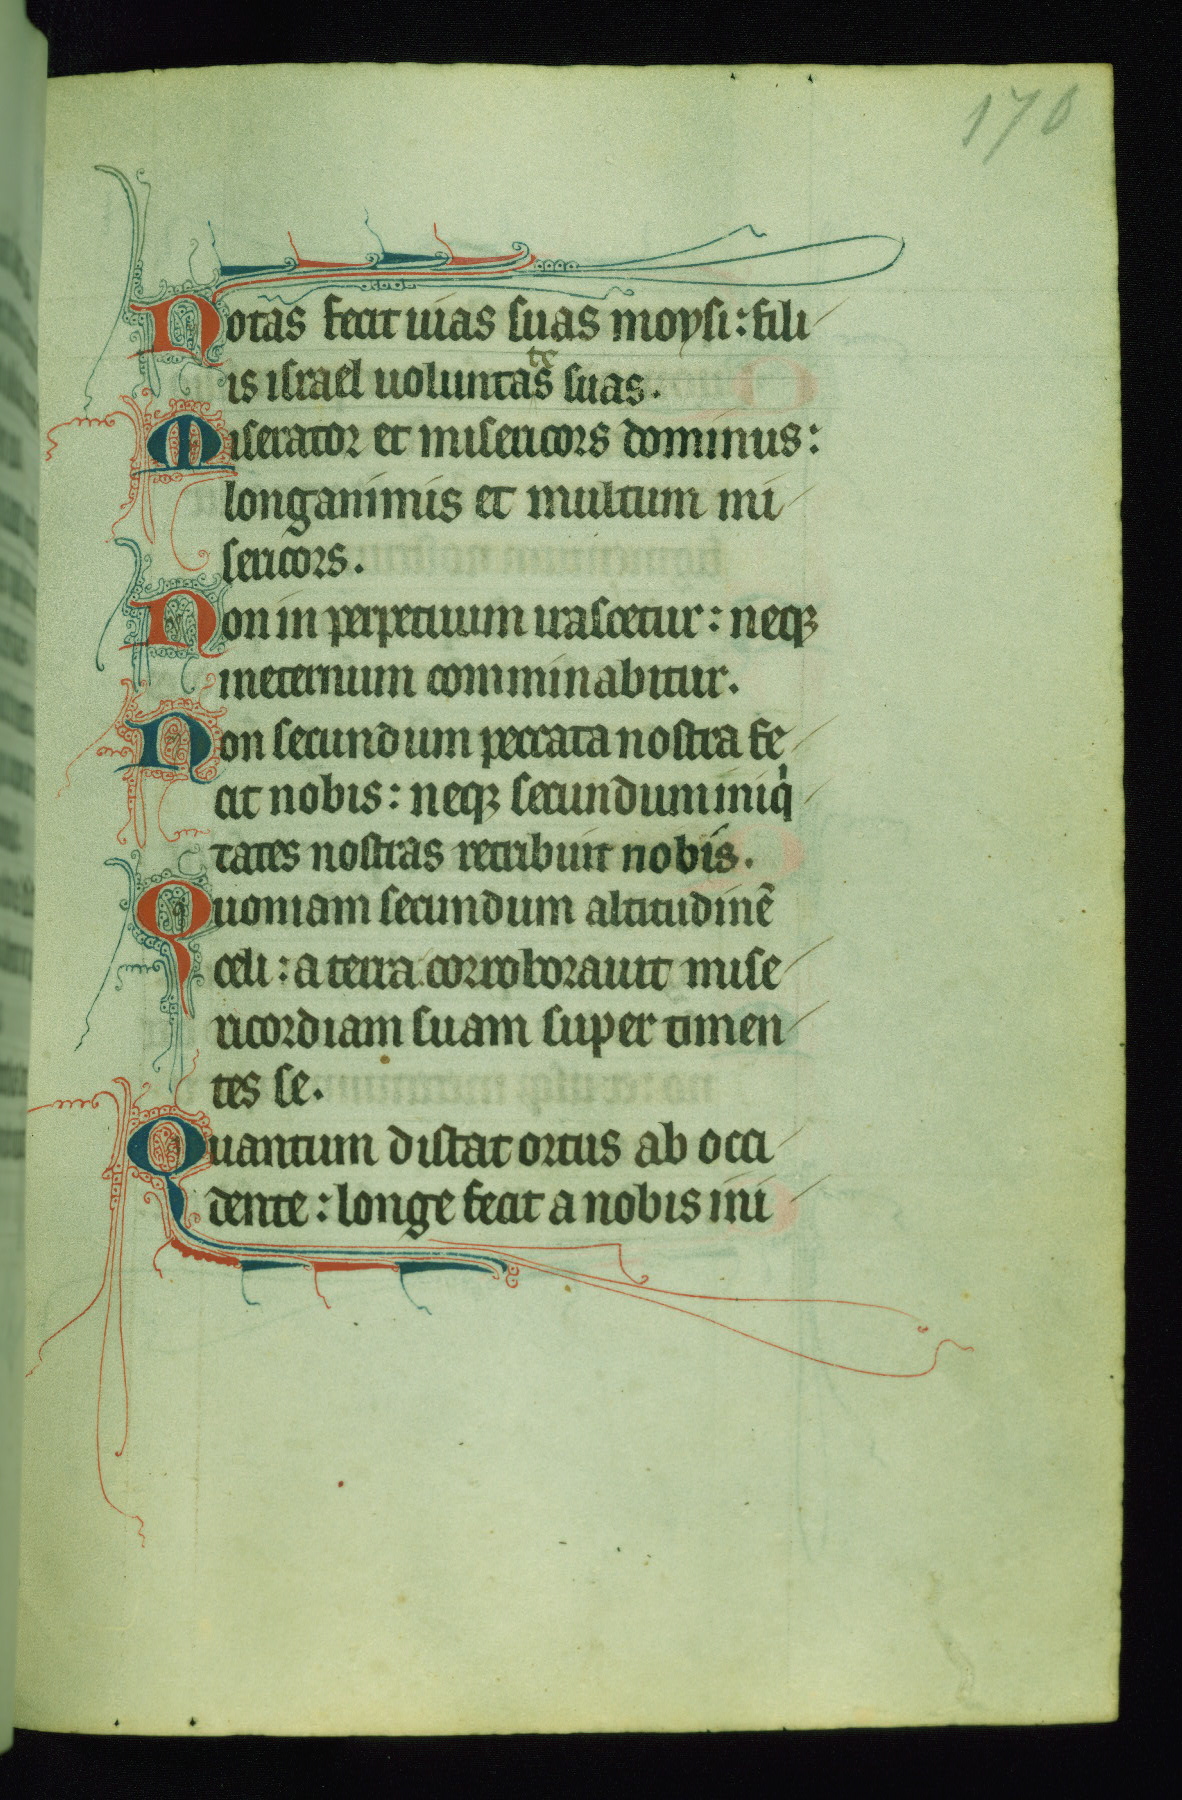 170
Notas fecit uias suas moysi: fili
te
is israel uoluntas suas.
Miserator et misericors dominus:
longanimis et multum mi
sericors.
Non in perpetuum irascetur: neqꝫ
ineternum comminabitur.
Non secundum peccata nostra fe
cit nobis: neqꝫ secundum iniqͥ
tates nostras retribuit nobis.
Quoniam secundum altitudinē
celi: a terra corroborauit mise
ricordiam suam super timen
tes se.
Quantum distat ortus ab occi
dente: longe fecit a nobis ini